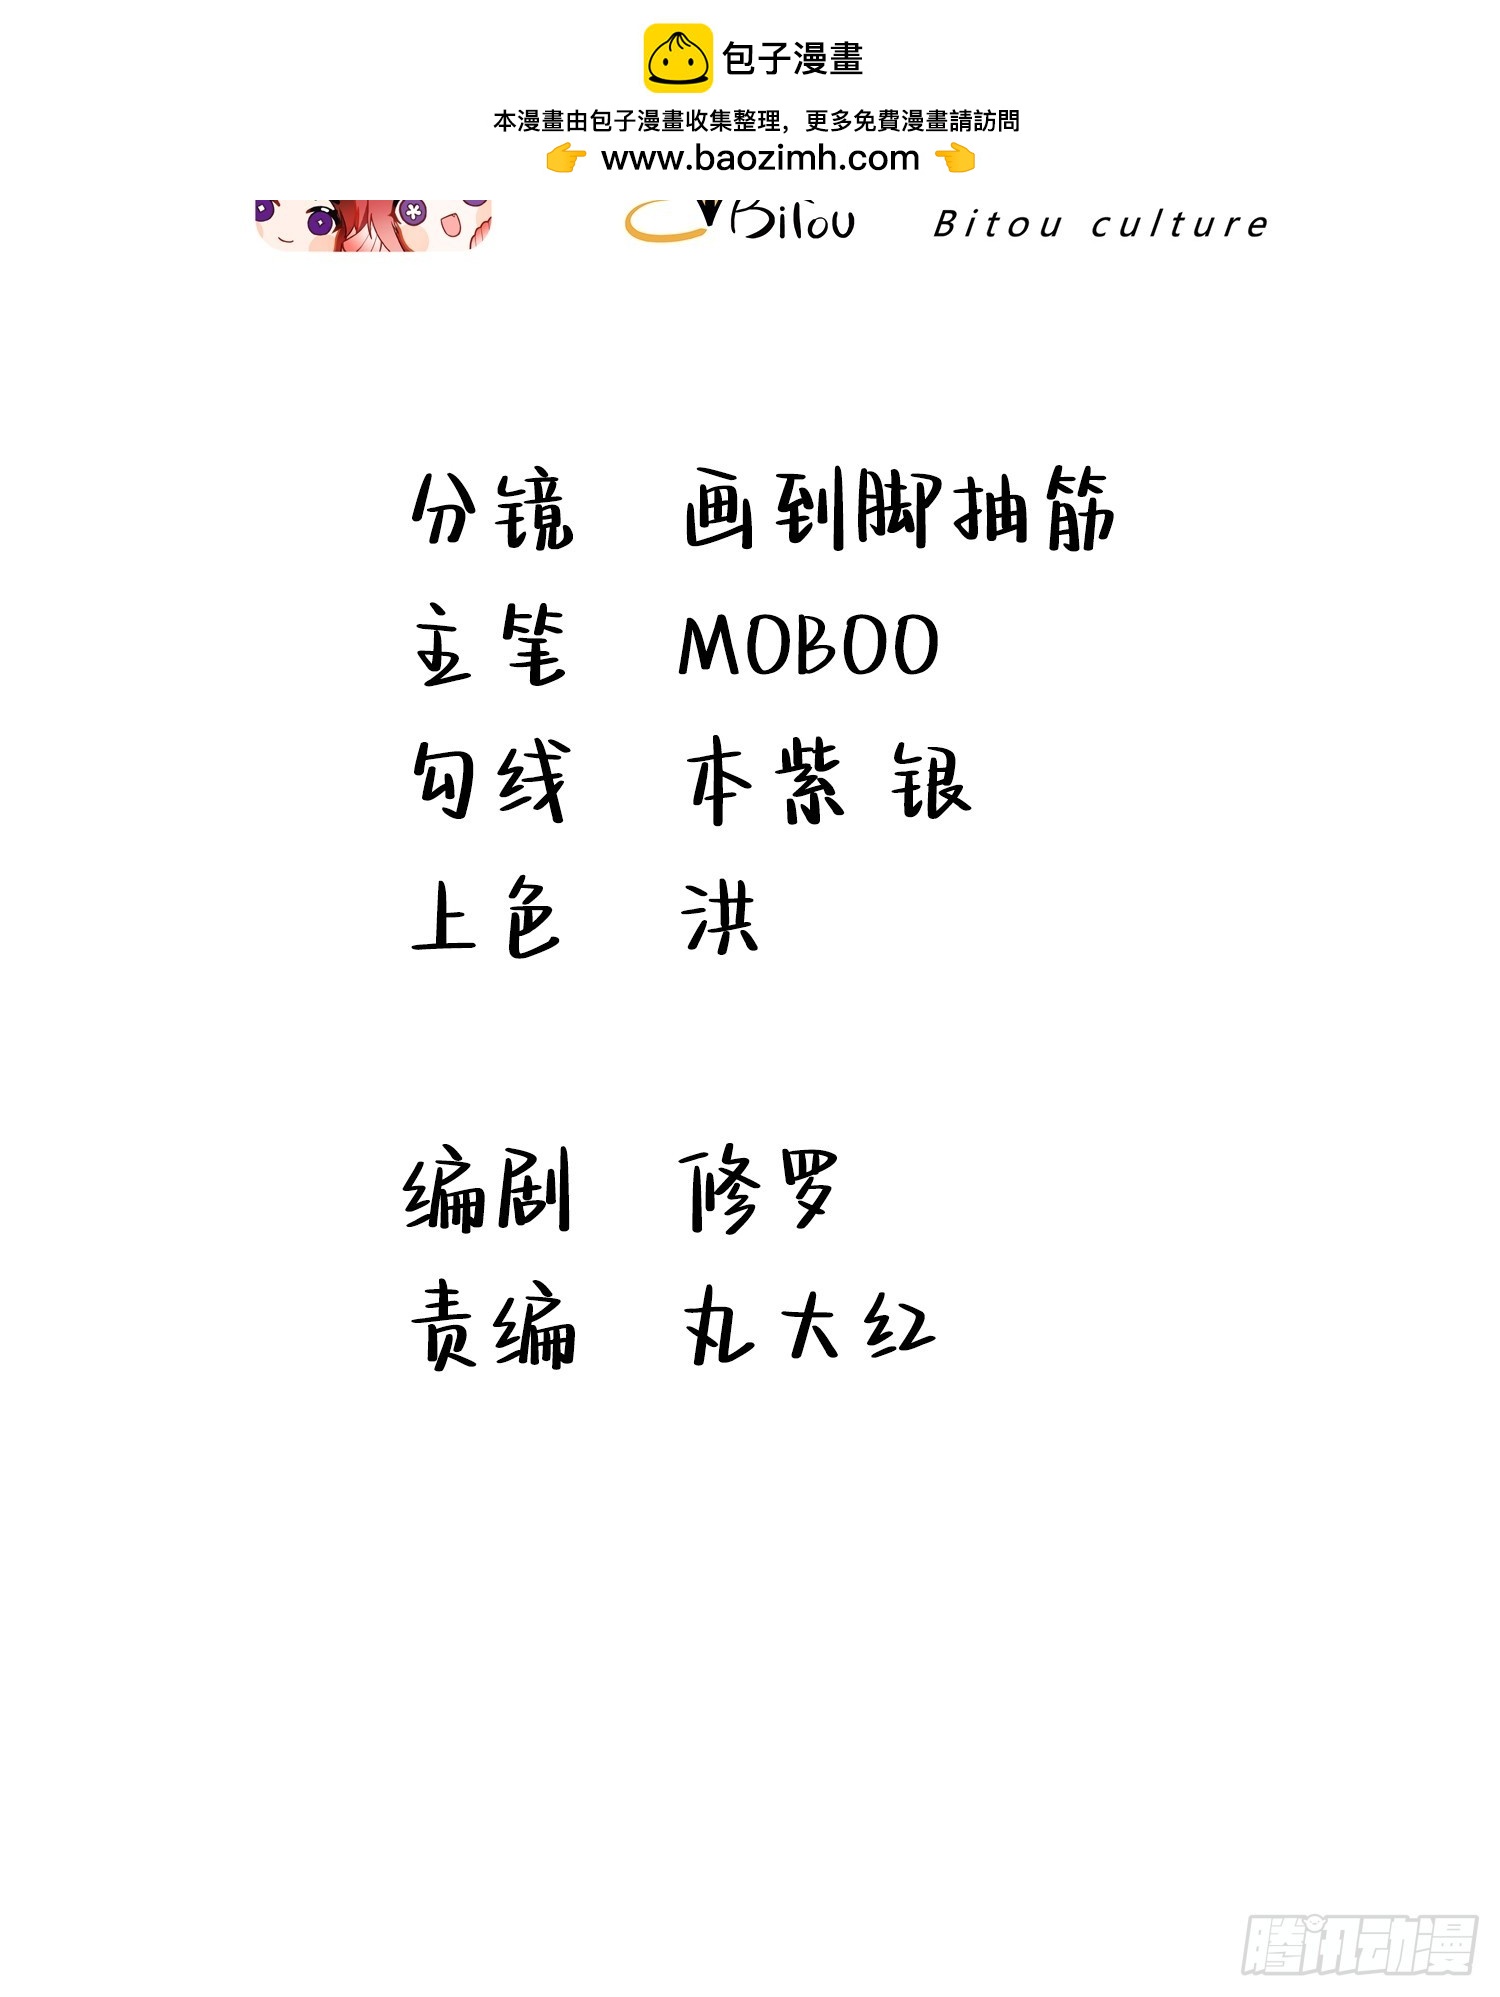 包子漫畫
本漫畫由包子漫畫收集整理，更多免費漫畫請訪問
www.baozimh.com
Bitou Bitou culture
分镜 画到脚抽筋
主笔 MOBOO
勾线 本紫 银
上色 洪
编剧 修罗
责编 丸大红
腾讯动漫